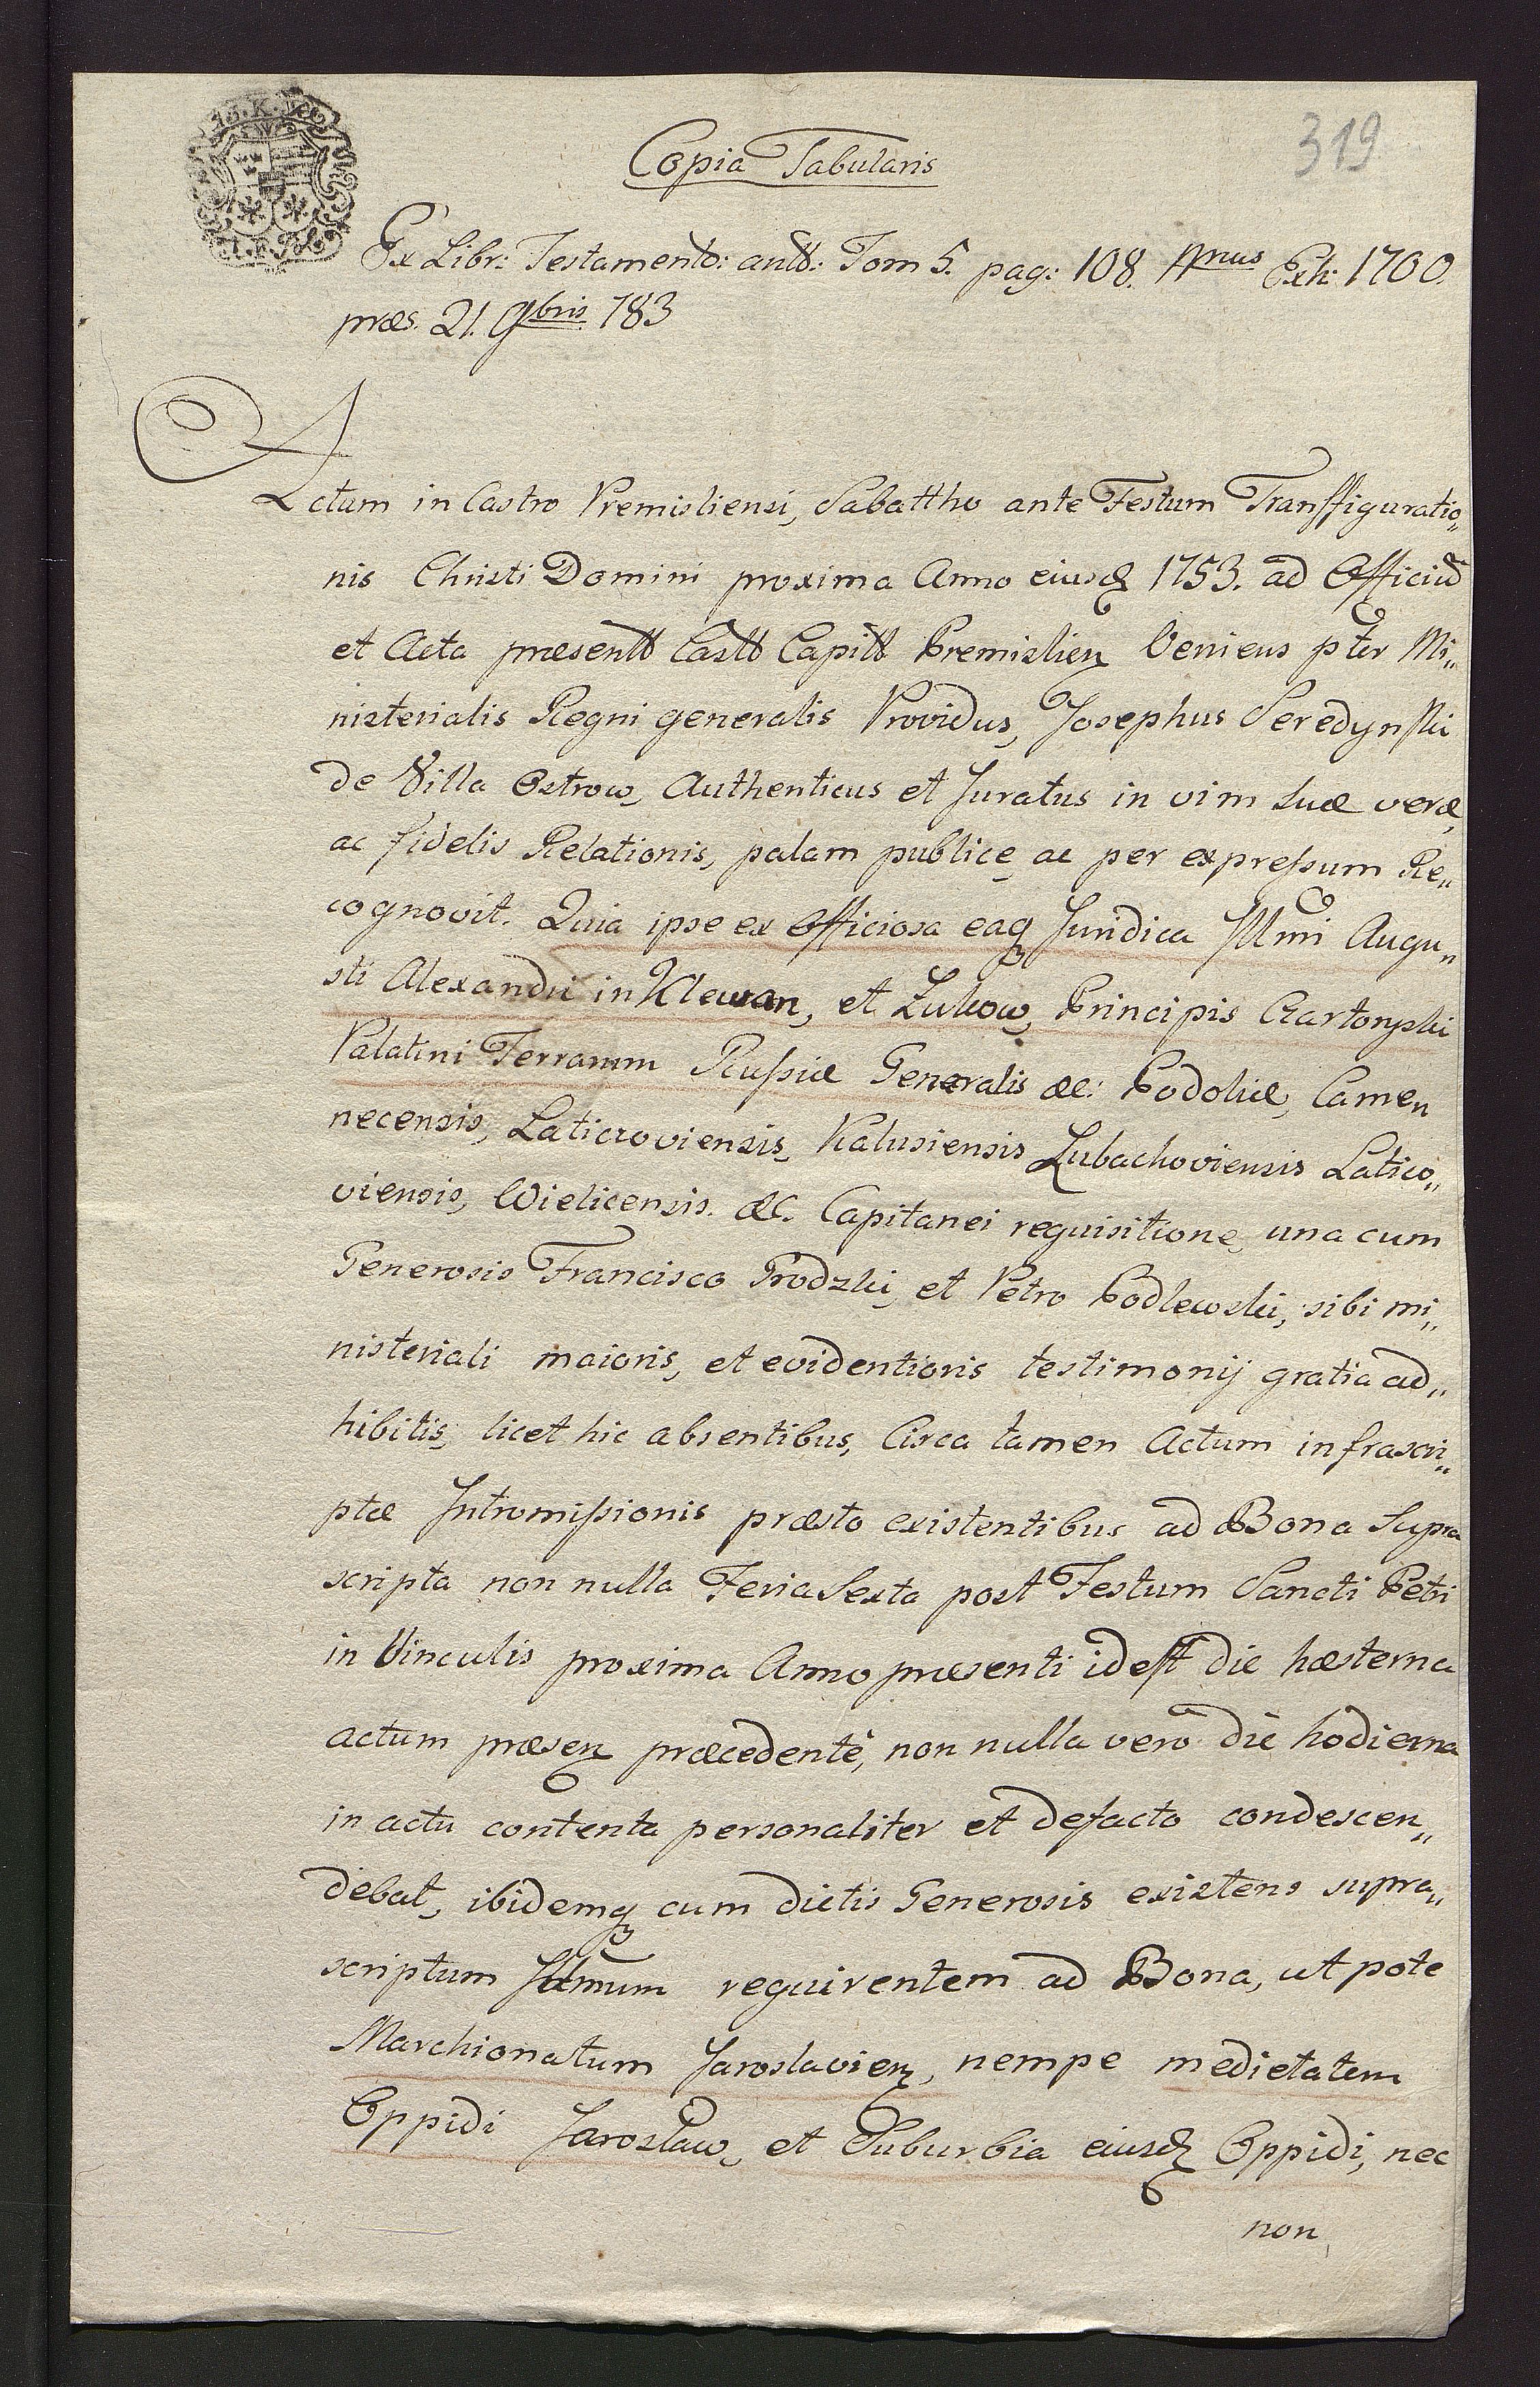 319
Copia Tabularis
Ex Libr: Testamentȣ: antȣ: Tom 5. pag: 108. Exh: 1700.
præs. 21. 9bris 783
Actum in Castro Premisliensi, Sabattho ante Festum Transffiguratio„
nis Christi Domini proxima Anno eiusđ 1753. ad Officiū
et Acta præsentt Castt Capitt Premislien Veniens pter Mi„
nisterialis Regni generalis Providus, Josephus Seredynski
de Villa Ostrow, Authenticus et Juratus in vim suæ veræ,
ac fidelis Relationis, palam publice ac per expressum Re„
cognovit. Quia ipse ex Officiosa eaq Juridica Illmi Augu„
sti Alexandri in Klewan, et Zukow, Principis Czartoryski
Palatini Terrarum Russiæ Generalis &c: Podoliæ, Camen
necensis, Laticzoviensis, Kalusiensis Lubachoviensis Latico„
viensis, Wielicensis. &c. Capitanei requisitione, una cum
Generosis Francisco Grodzki, et Petro Podlewski, sibi mi„
nisteriali maioris, et evidentioris testimonij gratia ad„
hibitis, licet hic absentibus, Circa tamen Actum infrascri„
ptæ Intromissionis præsto existentibus ad Bona Supra
scripta non nulla Feria Sexta post Festum Sancti Petri
in Vinculis proxima Anno præsenti id est die hæsterna
actum præsen præcedentè, non nulla verò die hodierna
in actu contenta personaliter et defacto condescen„
debat, ibidemq cum dictis Generosis existens supra„
scriptum Illmum requirentem ad Bona, ut pote
Marchionatum Jaroslavien, nempe medietatem
Oppidi Jaroslaw, et Suburbia eiusđ Oppidi, nec
non